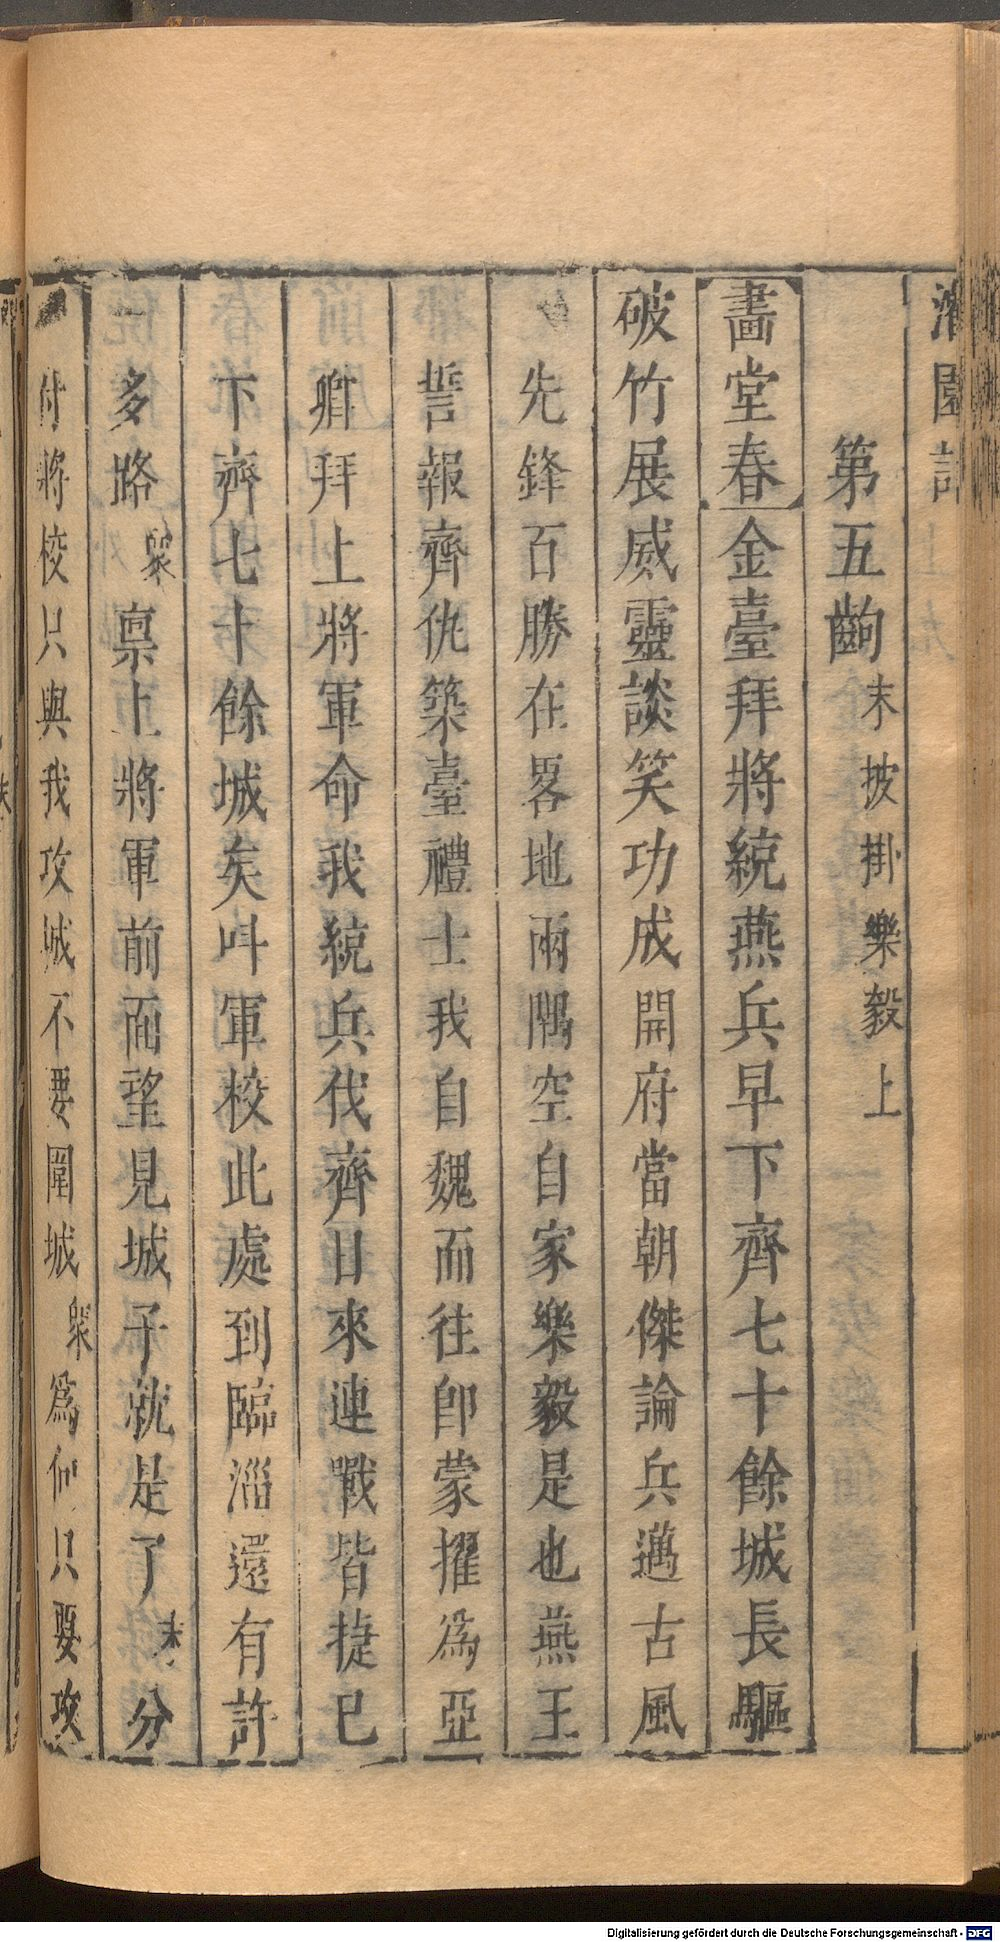 灌園記
第五齣末披掛樂毅上
畫堂春金臺拜將統燕兵早下齊七十餘城長驅
破竹展威靈談笑功成開府當朝傑論兵邁古風
先鋒百勝在畧地兩隅空自家樂毅是也燕王
誓報齊仇築臺禮士我自魏而往卽蒙擢為亞
卿拜上將軍命我統兵伐齊日來連戰皆捷已
下齊七十餘城矣呌軍校此處到臨淄還有許
多路衆稟上將軍前面望見城子就是了末分
付將校只與我攻城不要圍城衆為何只要攻
Digitalisierung gefördert durch die Deutsche Forschungsgemeinschaft - DFG